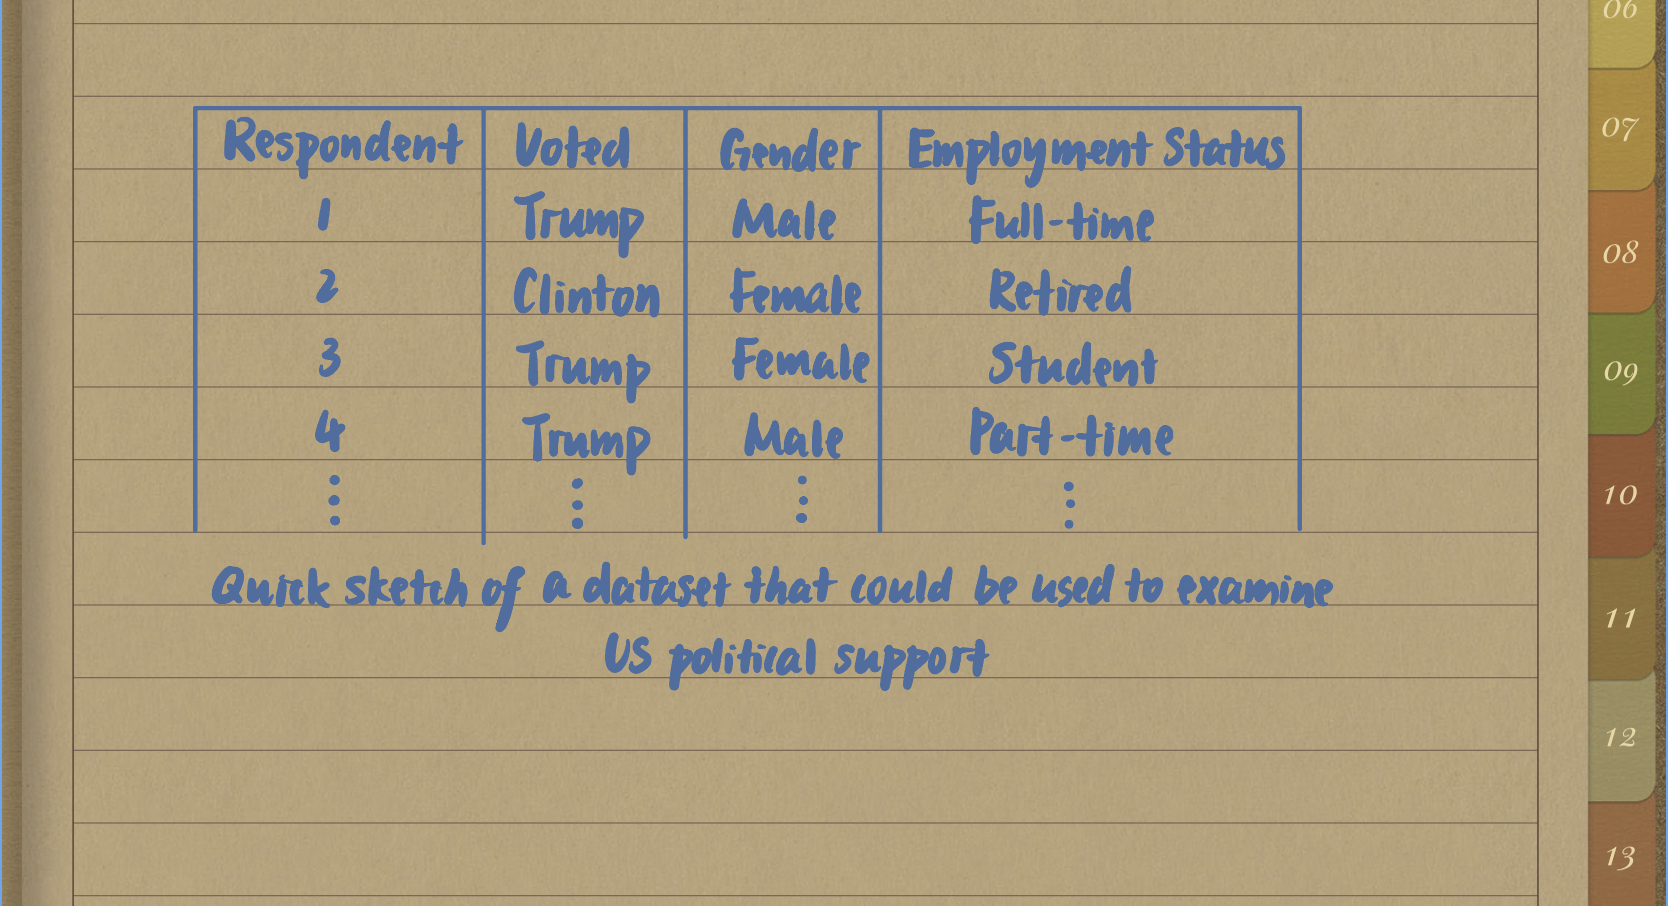 Respondent Voted Gender Employment Status
1 Trump Male Full-time
2 Clinton Female Retired
3 Trump Female Student
4 Trump Male Part-time
Quick sketch of a dataset that could be used to examine
US political support
06
07
08
09
10
11
12
13